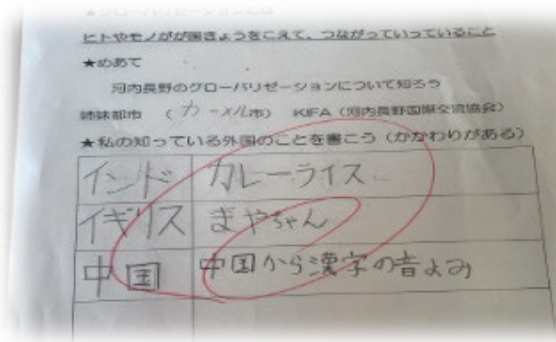 ★グローバリゼーションとは
ヒトやモノがが国きょうをこえて、つながっていっていること
★めあて
河内長野のグローバリゼーションについて知ろう
姉妹都市 (カーメル市) KIFA(河内長野国際交流協会)
★私の知っている外国のことを書こう(かかわりがある)
インド カレーライス
イギリス まやちゃん
中国 中国から漢字の音よみ